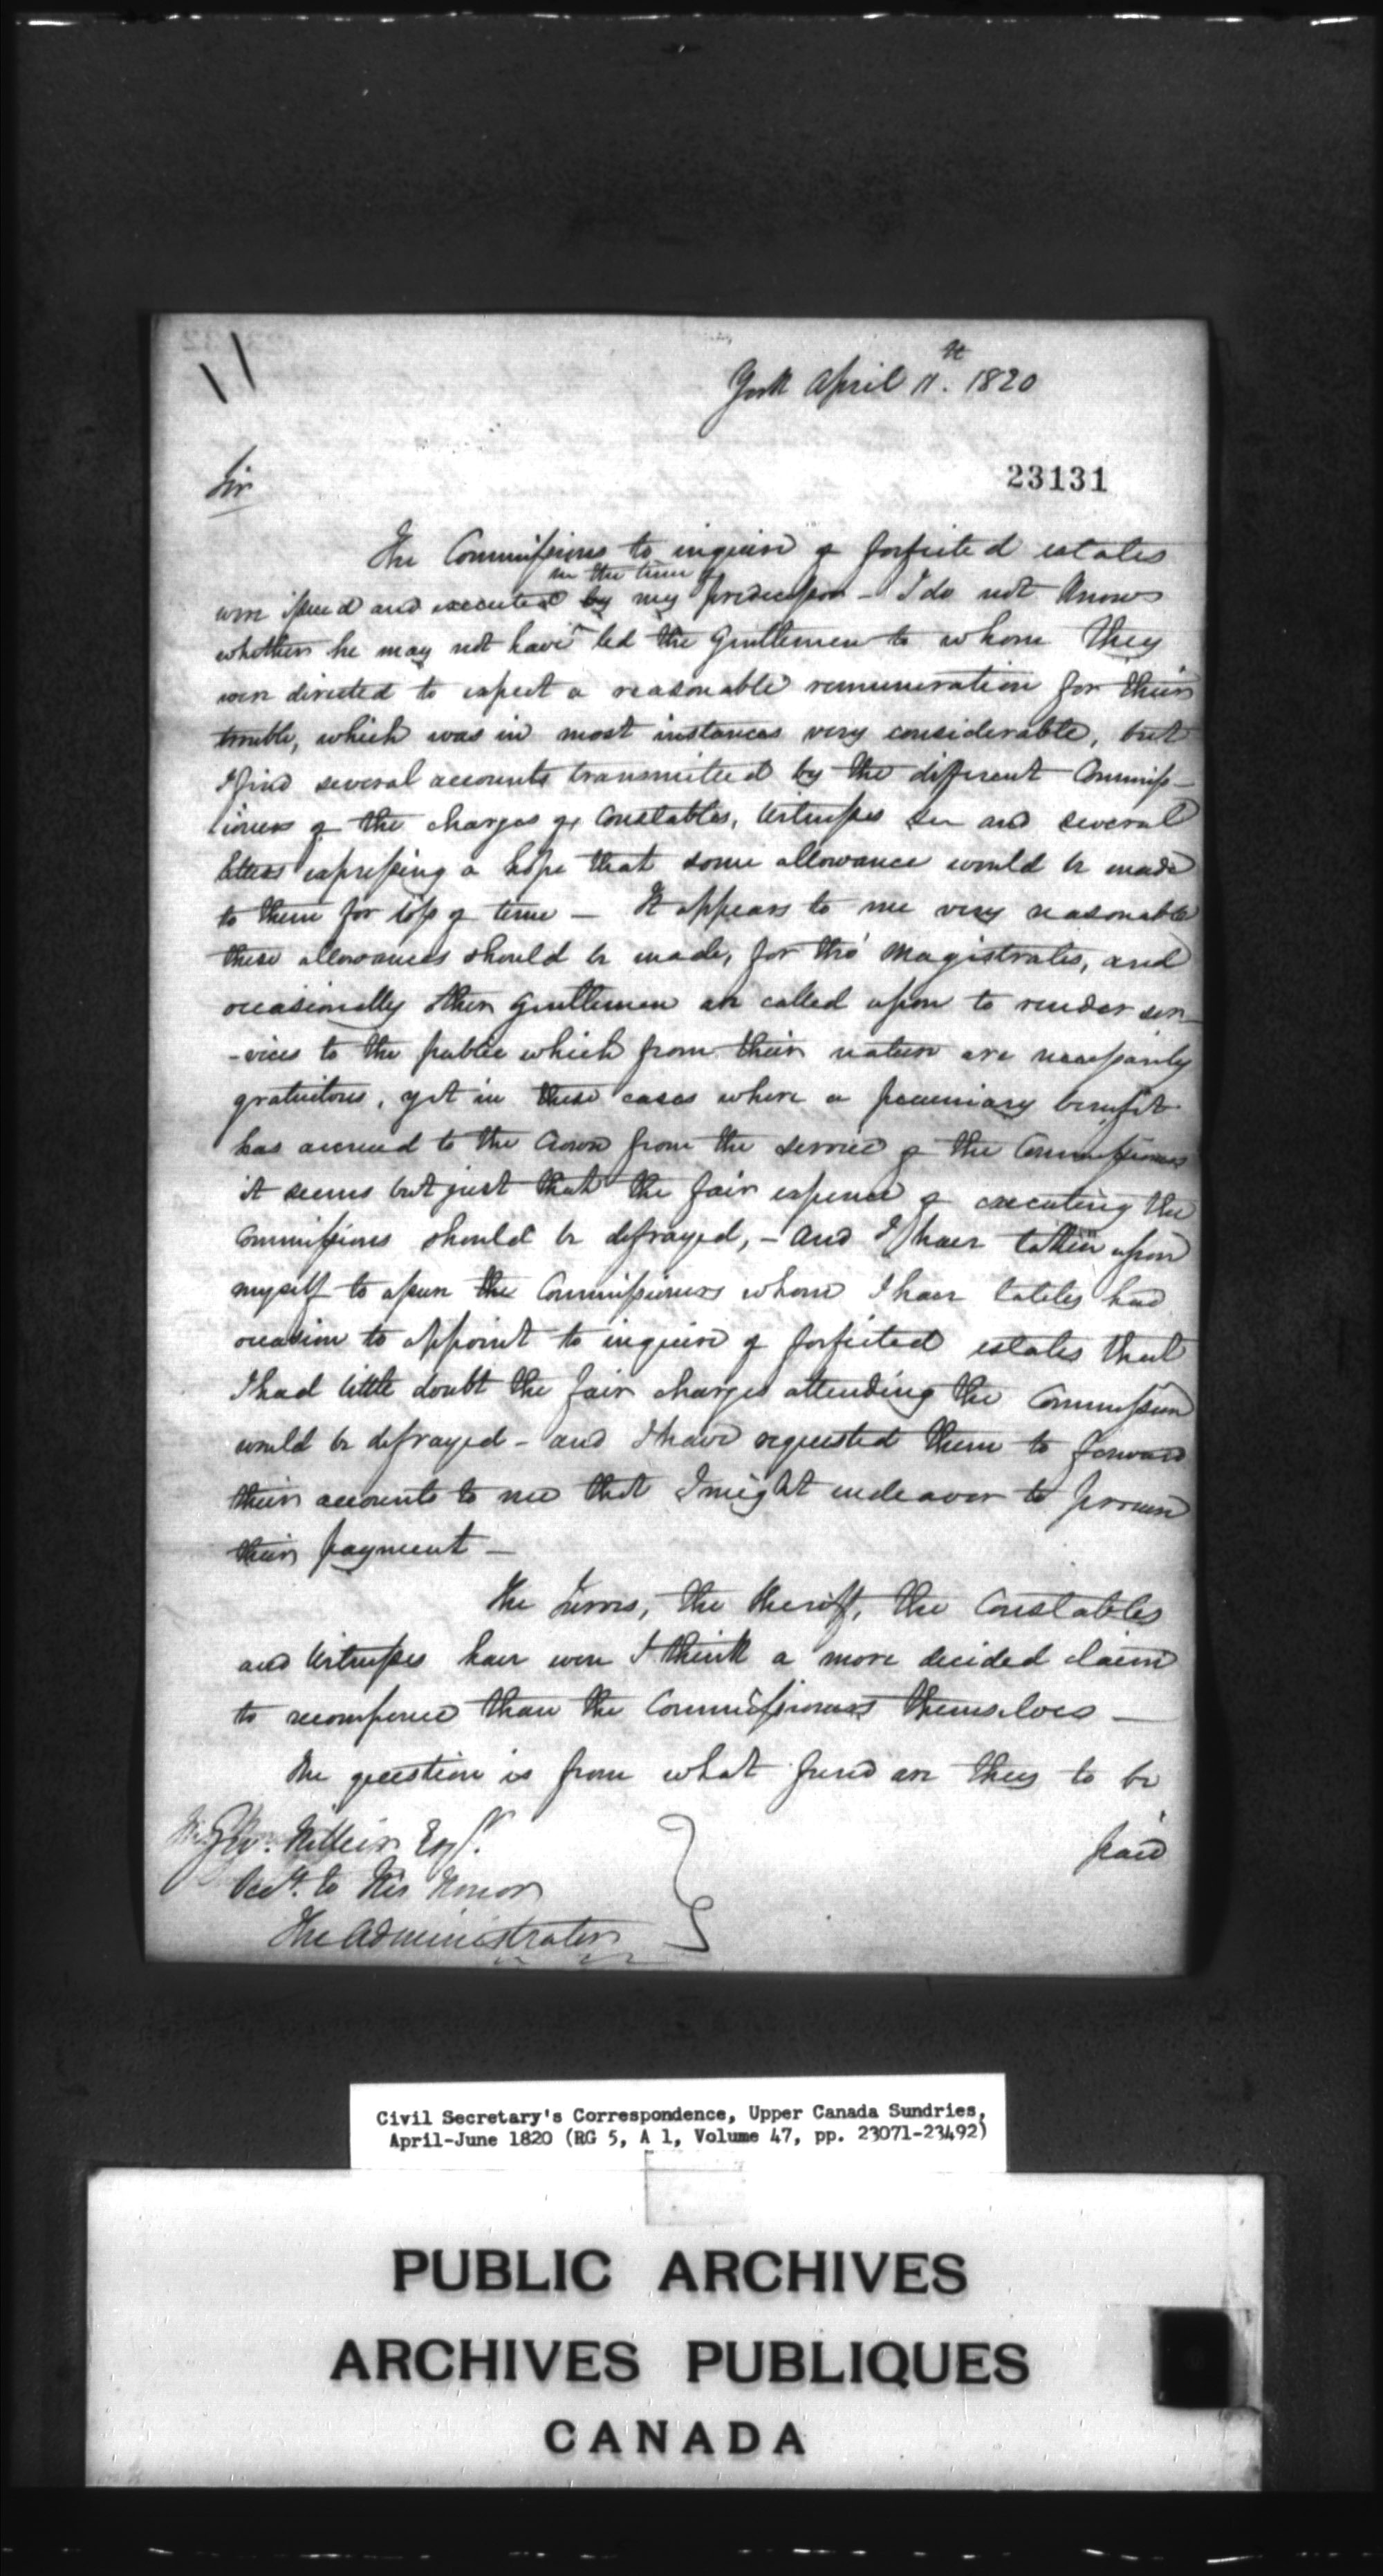 York April 11th. 1820
Sir
23131
The Commissions to inquire of forfeited estates
in the time of
were issued and executed by my predecessor - I do not know
whether he may not have led the Gentlemen to whom they
were directed to expect a reasonable remuneration for their
trouble, which was in most instances very considerable, but
I find several accounts transmitted by the different Commiss-
ioners of the charges of Constables, Witnesses &c and several
letters expressing a hope that some allowance would be made
to them for loss of time — It appears to me very reasonable
these allowances should be made, for tho' Magistrates, and
occasionally other gentlemen are called upon to render ser-
-vices to the public which from their nature are necessarily
gratuitous, yet in these cases where a pecuniary benefit
has accrued to the Crown from the service of the Commissioners
it seems but just that the fair expence of executing the
Commissions should be defrayed, - and I have taken upon
myself to assure the Commissioners whom I have lately had
occasion to appoint to inquire of forfeited estates that
I had little doubt the fair charges attending the Commission
would be defrayed - and I have requested them to forward
their accounts to me that I might endeavor to procure
their payment —
The Jurors, the Sheriff, the Constables
and Witnesses have even I think a more decided claim
to recompence than the Commissioners themselves —
The question is from what fund are they to be
paid
Geo. Hillier Esqr.
Secy. to His Honor
The Administrator
Civil Secretary's Correspondence, Upper Canada Sundries,
April-June 1820 (RG 5, A 1, Volume 47, pp. 23071-23492)
PUBLIC ARCHIVES
ARCHIVES PUBLIQUES
CANADA